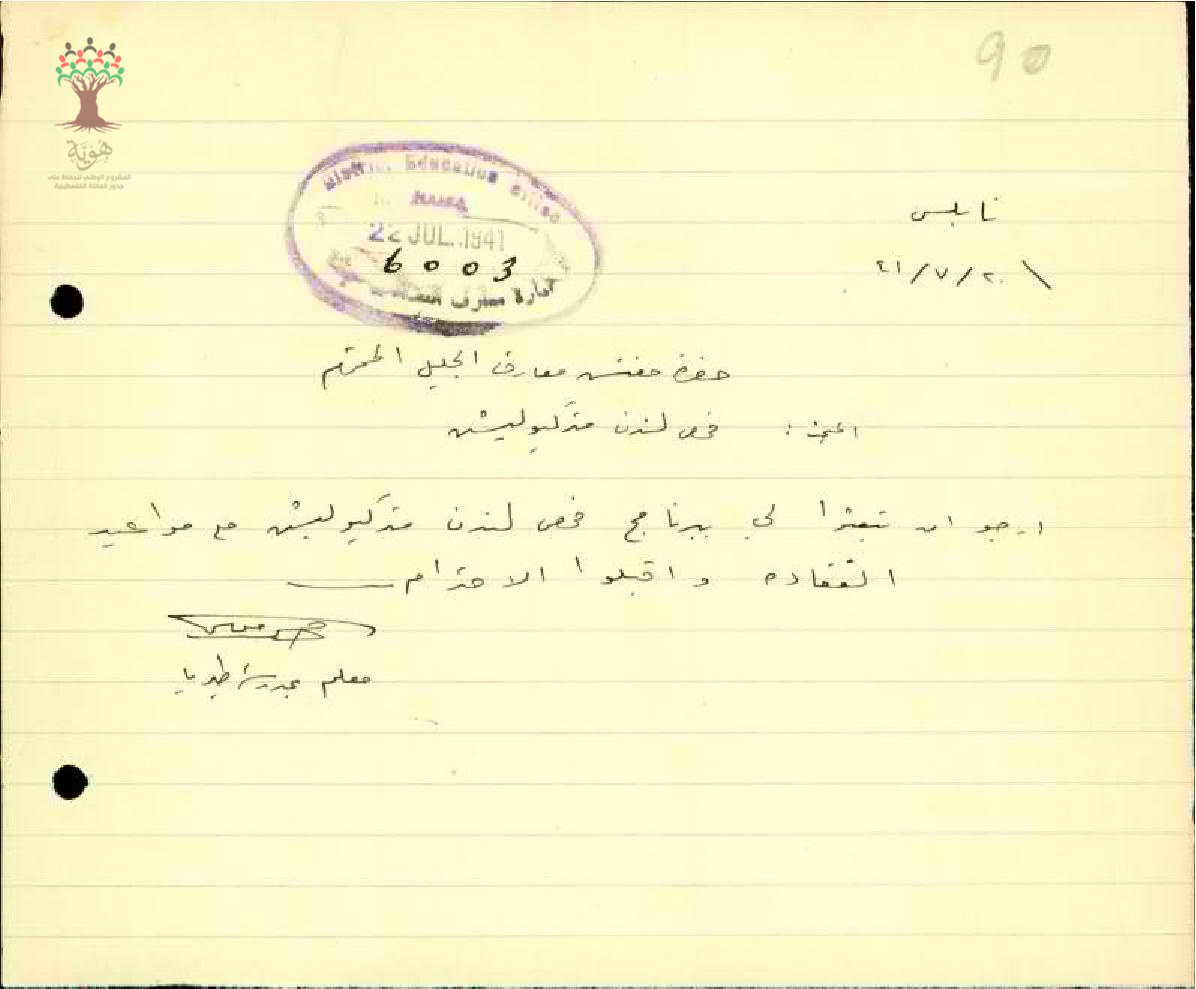 90
هوية
المشروع الوطني للحفاظ على
جذور العائلة الفلسطينية
District Education Office
HAIFA
22 JUL 1941
6003
ادارة معارف
نابلس
٢٠/٧/٤١
حضرة مفتش معارف الجليل المحترم
البحث: فحص لندن متركيوليشن
ارجو ان تبعثوا لي ببرنامج فحص لندن متركيوليشن مع مواعيد
انعقاده واقبلوا الاحترام
معلم بمدرسة طبريا